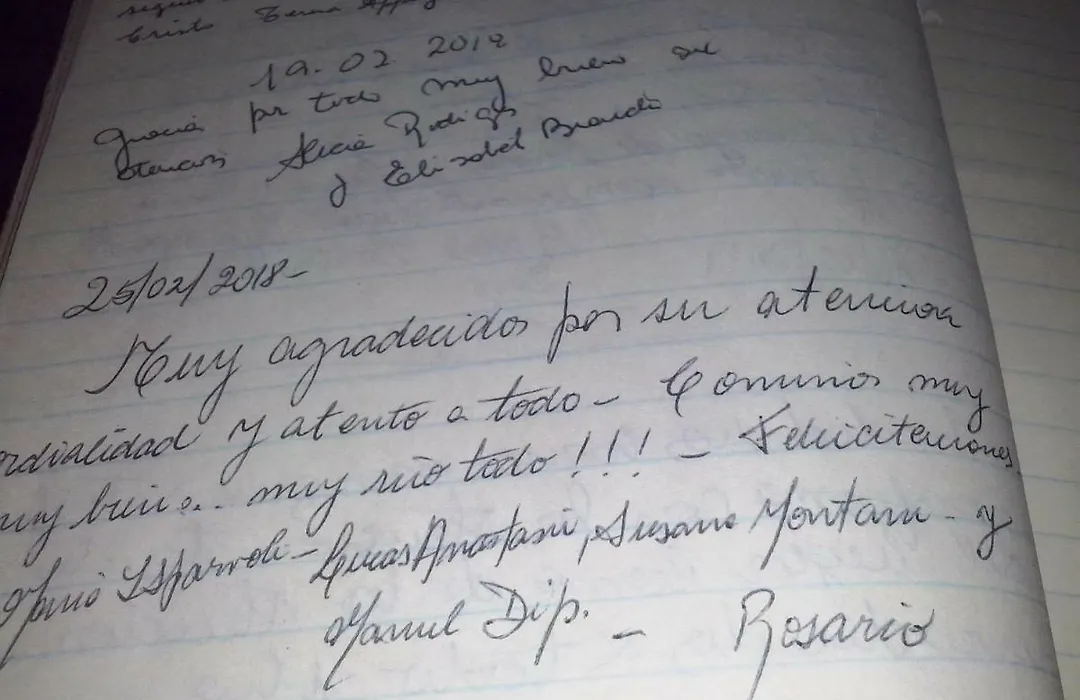 19.02 2018
Gracias por todo muy bueno su
atencion Alicia Rodrigo
y Elisabel Brando
25/02/2018-
Muy agradecidos por su atencion
ordialidad y atento a todo - Comimos muy
uy bien... muy rico todo!!! - Felicitaciones
Lucas Anastasi, Susana Montani - y
Manuel Dip. - Rosario